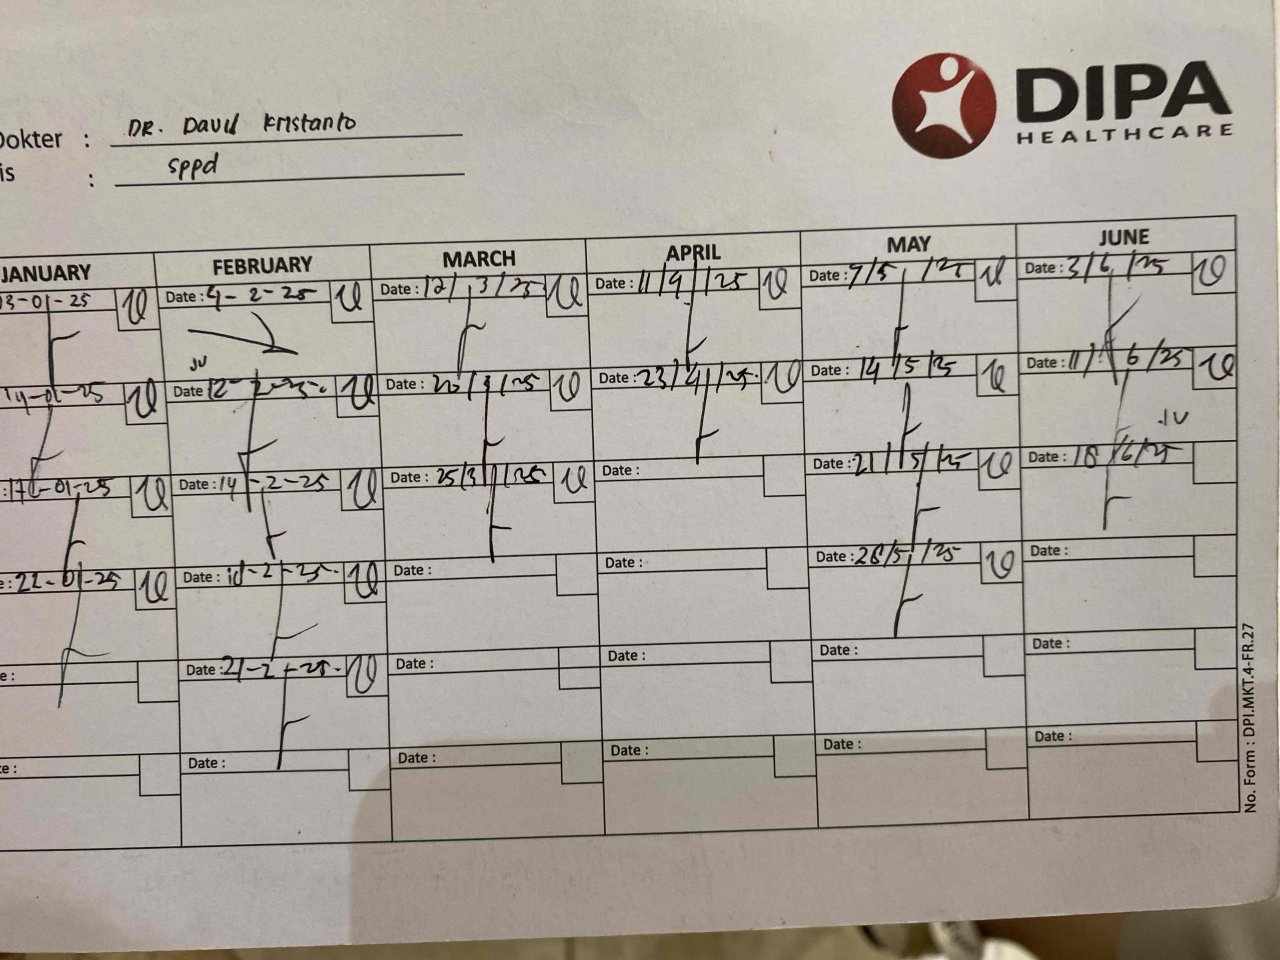 DIPA
HEALTHCARE
Dokter : DR. David Kristanto
is : Sppd
JANUARY FEBRUARY MARCH APRIL MAY JUNE
03-01-25 Date : 4-2-25 Date : 12/3/25 Date : 11/4/25 Date : 7/5/25 Date : 3/6/25
JU
14-01-25 Date 12-2-25. Date : 20/3/25 Date : 23/4/25. Date : 14/5/25 Date : 11/6/25
JU
: 17-01-25 Date : 14-2-25 Date : 25/3/25 Date : Date : 21/5/25 Date : 18/6/25
e : 22-01-25 Date : 18-2-25. Date : Date : Date : 28/5/25 Date :
e : Date : 21-2-25. Date : Date : Date : Date :
te : Date : Date : Date : Date : Date :
No. Form : DPI.MKT.4-FR.27